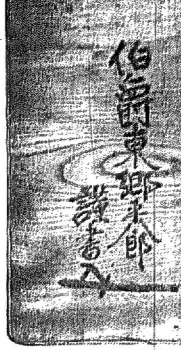 伯爵東郷平八郎
書入